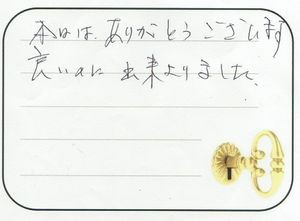 本日は、ありがとうございます
良いaに出来よりました。